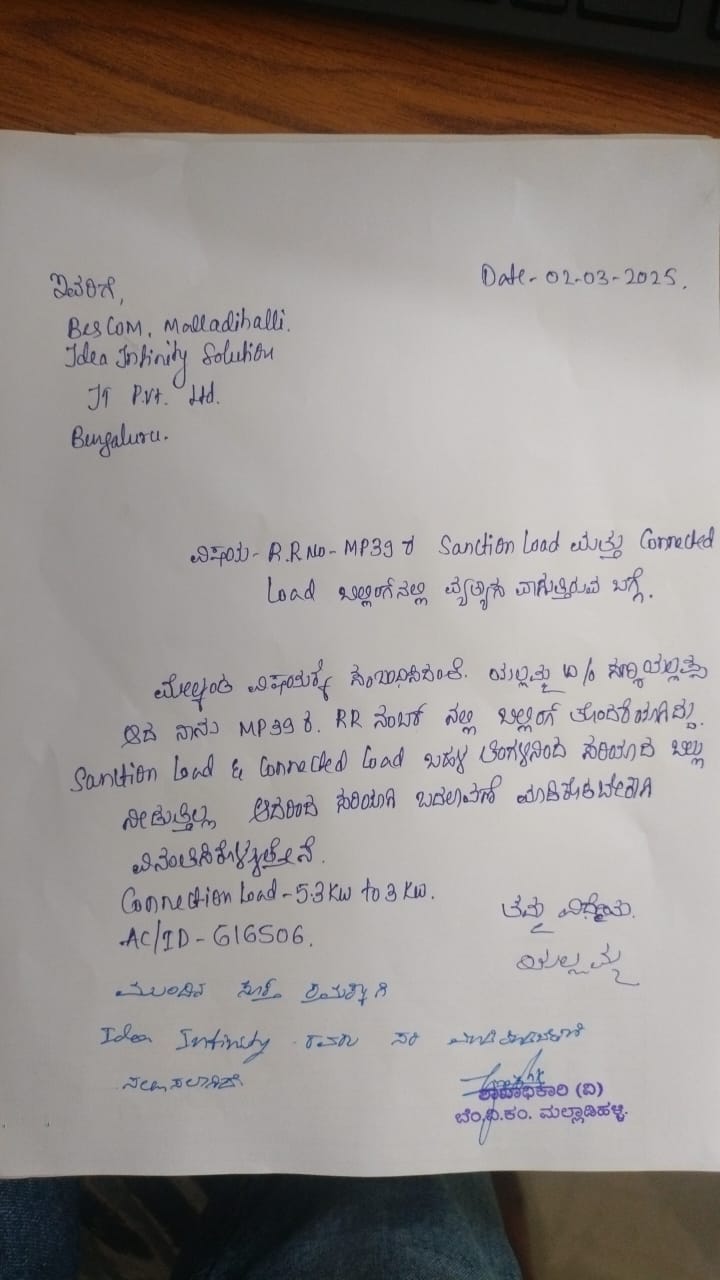 ಇವರಿಗೆ,
Date- 02-03-2025.
BesCOM, Malladihalli.
Idea Infinity Solution
IT Pvt. Ltd.
Bengaluru.
ವಿಷಯ- R.R No- MP39 ರ Sanction Load ಮತ್ತು Connected
Load ಬಿಲ್ಲಿಂಗ್‌ನಲ್ಲಿ ವ್ಯತ್ಯಾಸ ವಾಗುತ್ತಿರುವ ಬಗ್ಗೆ.
ಮೇಲ್ಕಂಡ ವಿಷಯಕ್ಕೆ ಸಂಬಂಧಿಸಿದಂತೆ. ಯಲ್ಲಮ್ಮ
ಆದ ನಾನು MP39 ರ. RR ನಂಬರ್ ನಲ್ಲಿ ಬಿಲ್ಲಿಂಗ್ ತೊಂದರೆಯಾಗಿದ್ದು.
Sanction Load & Connected Load ಬಹಳ ತಿಂಗಳಿನಿಂದ ಸರಿಯಾದ ಬಿಲ್ಲು
ನೀಡುತ್ತಿಲ್ಲ ಆದರಿಂದ ಸರಿಯಾಗಿ ಬದಲಾವಣೆ ಮಾಡಿಕೊಡಬೇಕಾಗಿ
ವಿನಂತಿಸಿಕೊಳ್ಳುತ್ತೇನೆ.
Connection Load - 5.3 KW to 3 KW.
AC/ID - 616506.
ತಮ್ಮ ವಿಧೇಯ.
ಯಲ್ಲಮ್ಮ
ಮುಂದಿನ ಸೂಕ್ತ ಕ್ರಮಕ್ಕಾಗಿ
Idea Infinity ರವರು ಸರಿ
ಶಾಖಾಧಿಕಾರಿ (ವಿ)
ಬೆಂ.ವಿ.ಕಂ. ಮಲ್ಲಾಡಿಹಳ್ಳಿ.